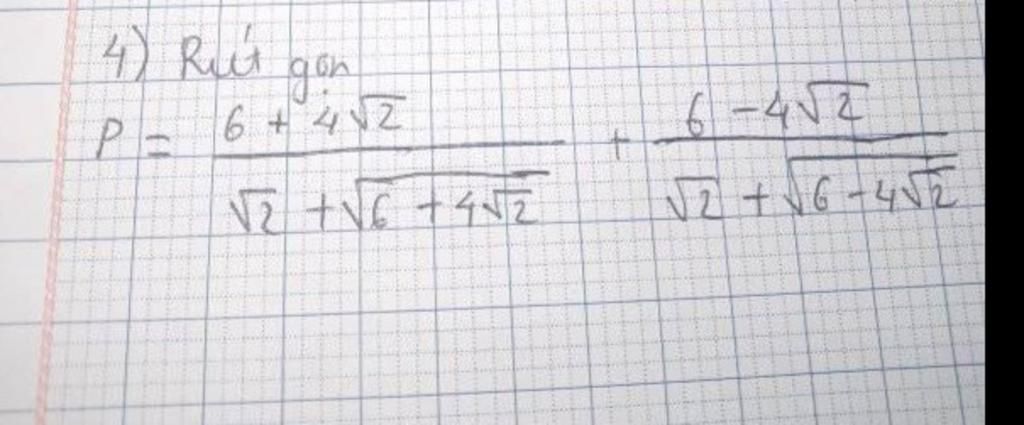 4) Rút gọn
P = \frac{6 + 4\sqrt{2}}{\sqrt{2} + \sqrt{6 + 4\sqrt{2}}} + \frac{6 - 4\sqrt{2}}{\sqrt{2} + \sqrt{6 - 4\sqrt{2}}}